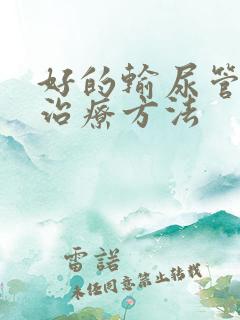 好的输尿管
治疗方法
雷諾
未经同意禁止转载